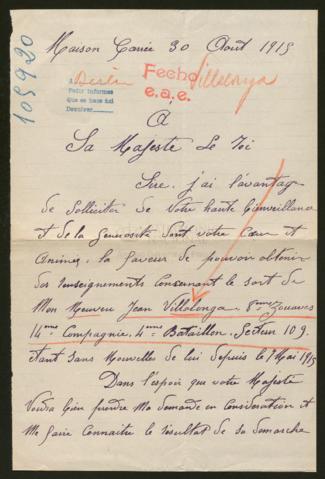 105920
Maison Carrée 30 Août 1915
A Berlin
Pedir informes
Que se hace así
Devolver
Fecho
e.a.e.
Villalonga
A
Sa Majesté Le Roi
Sire, j'ai l'avantage
de solliciter de Votre haute bienveillance
et de la générosité dont votre Cœur est
animé, la faveur de pouvoir obtenir
des renseignements concernant le sort de
Mon Neuveu Jean Villalonga. 8ème Zouaves
14me Compagnie. 4me Bataillon. Secteur 109.
étant sans Nouvelles de lui depuis le 7 Mai 1915
Dans l'espoir que votre Majesté
Voudra bien prendre Ma demande en Considération et
Me faire Connaitre le résultat de sa démarche